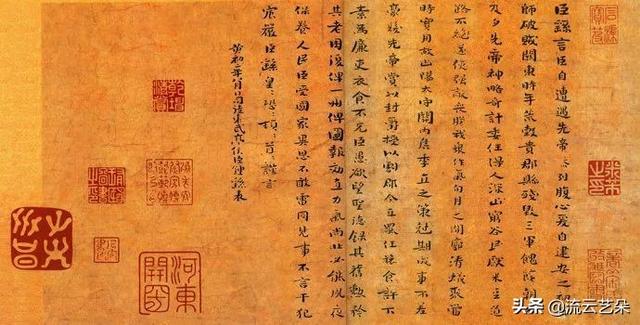 臣繇言臣自遭遇先帝忝列腹心爰自建安之初
師破賊關東時年荒穀貴郡縣殘毀三軍餽饟朝
及夕先帝神略奇計委任得人深山窮谷民獻米豆道
路不絕遂使強敵喪膽我眾作氣旬月之間廓清蟻聚當
時實用故山陽太守關內侯季直之策剋期成事不差
豪髮先帝賞以封爵授以劇郡今直罷任旅食許下
素為廉吏衣食不充臣愚欲望聖德錄其舊勳矜
其老困復俾一州俾圖報効直力氣尚壯必能夙夜
保養人民臣受國家異恩不敢雷同見事不言干犯
宸嚴臣繇皇:恐:頓:首:謹言
黃初二年八月日司徒東武亭侯臣鍾繇表
乾坤清賞
头条 @流云艺朵